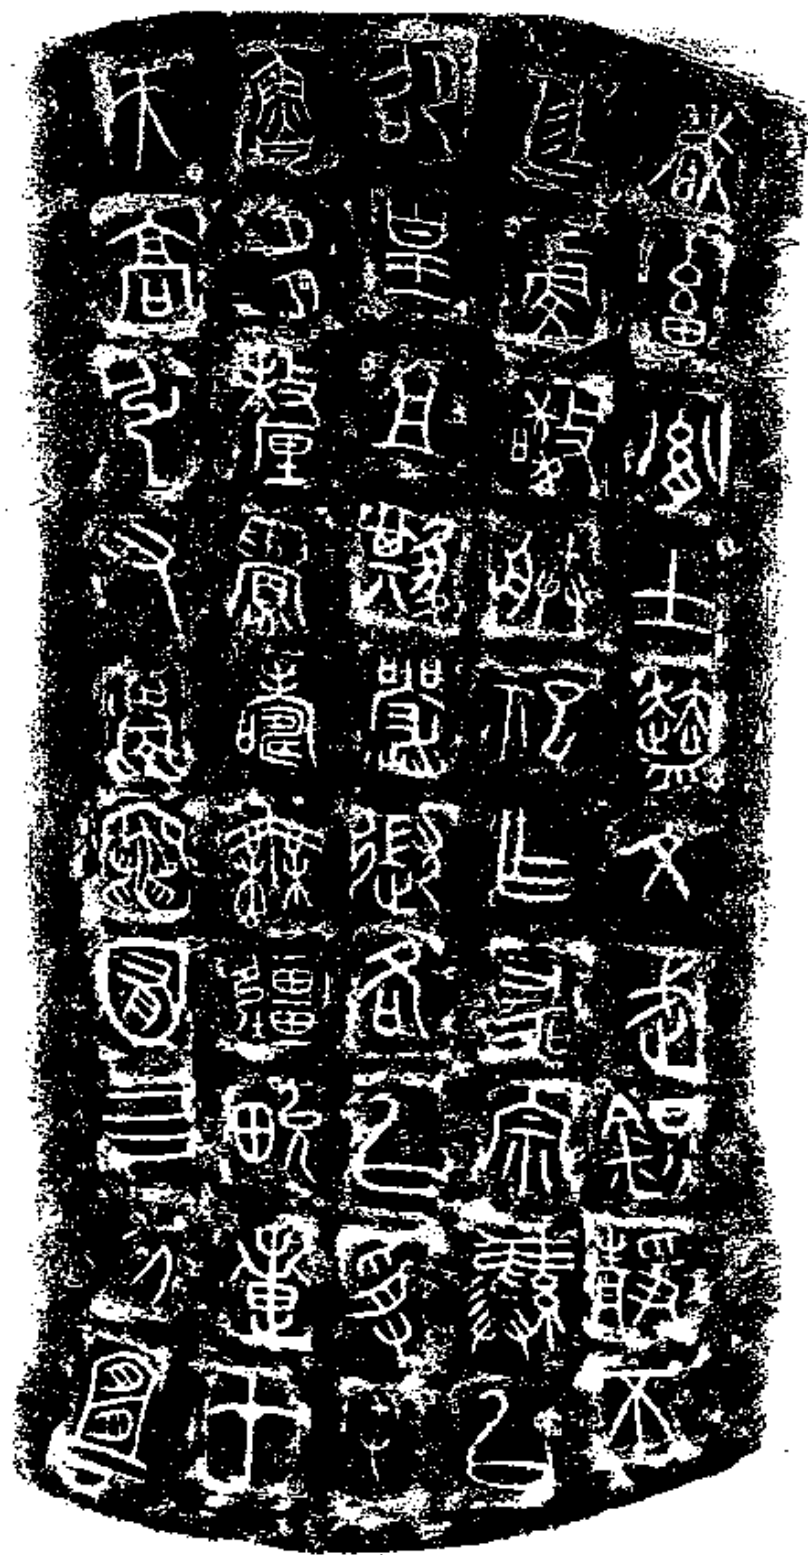 咸畜胤士盍文武鎮靜不
廷虔敬朕祀乍宗彝以
卲皇且其嚴御各以受屯
魯多釐眉壽無疆畯疐在
天高弘又慶竈囿四方宜